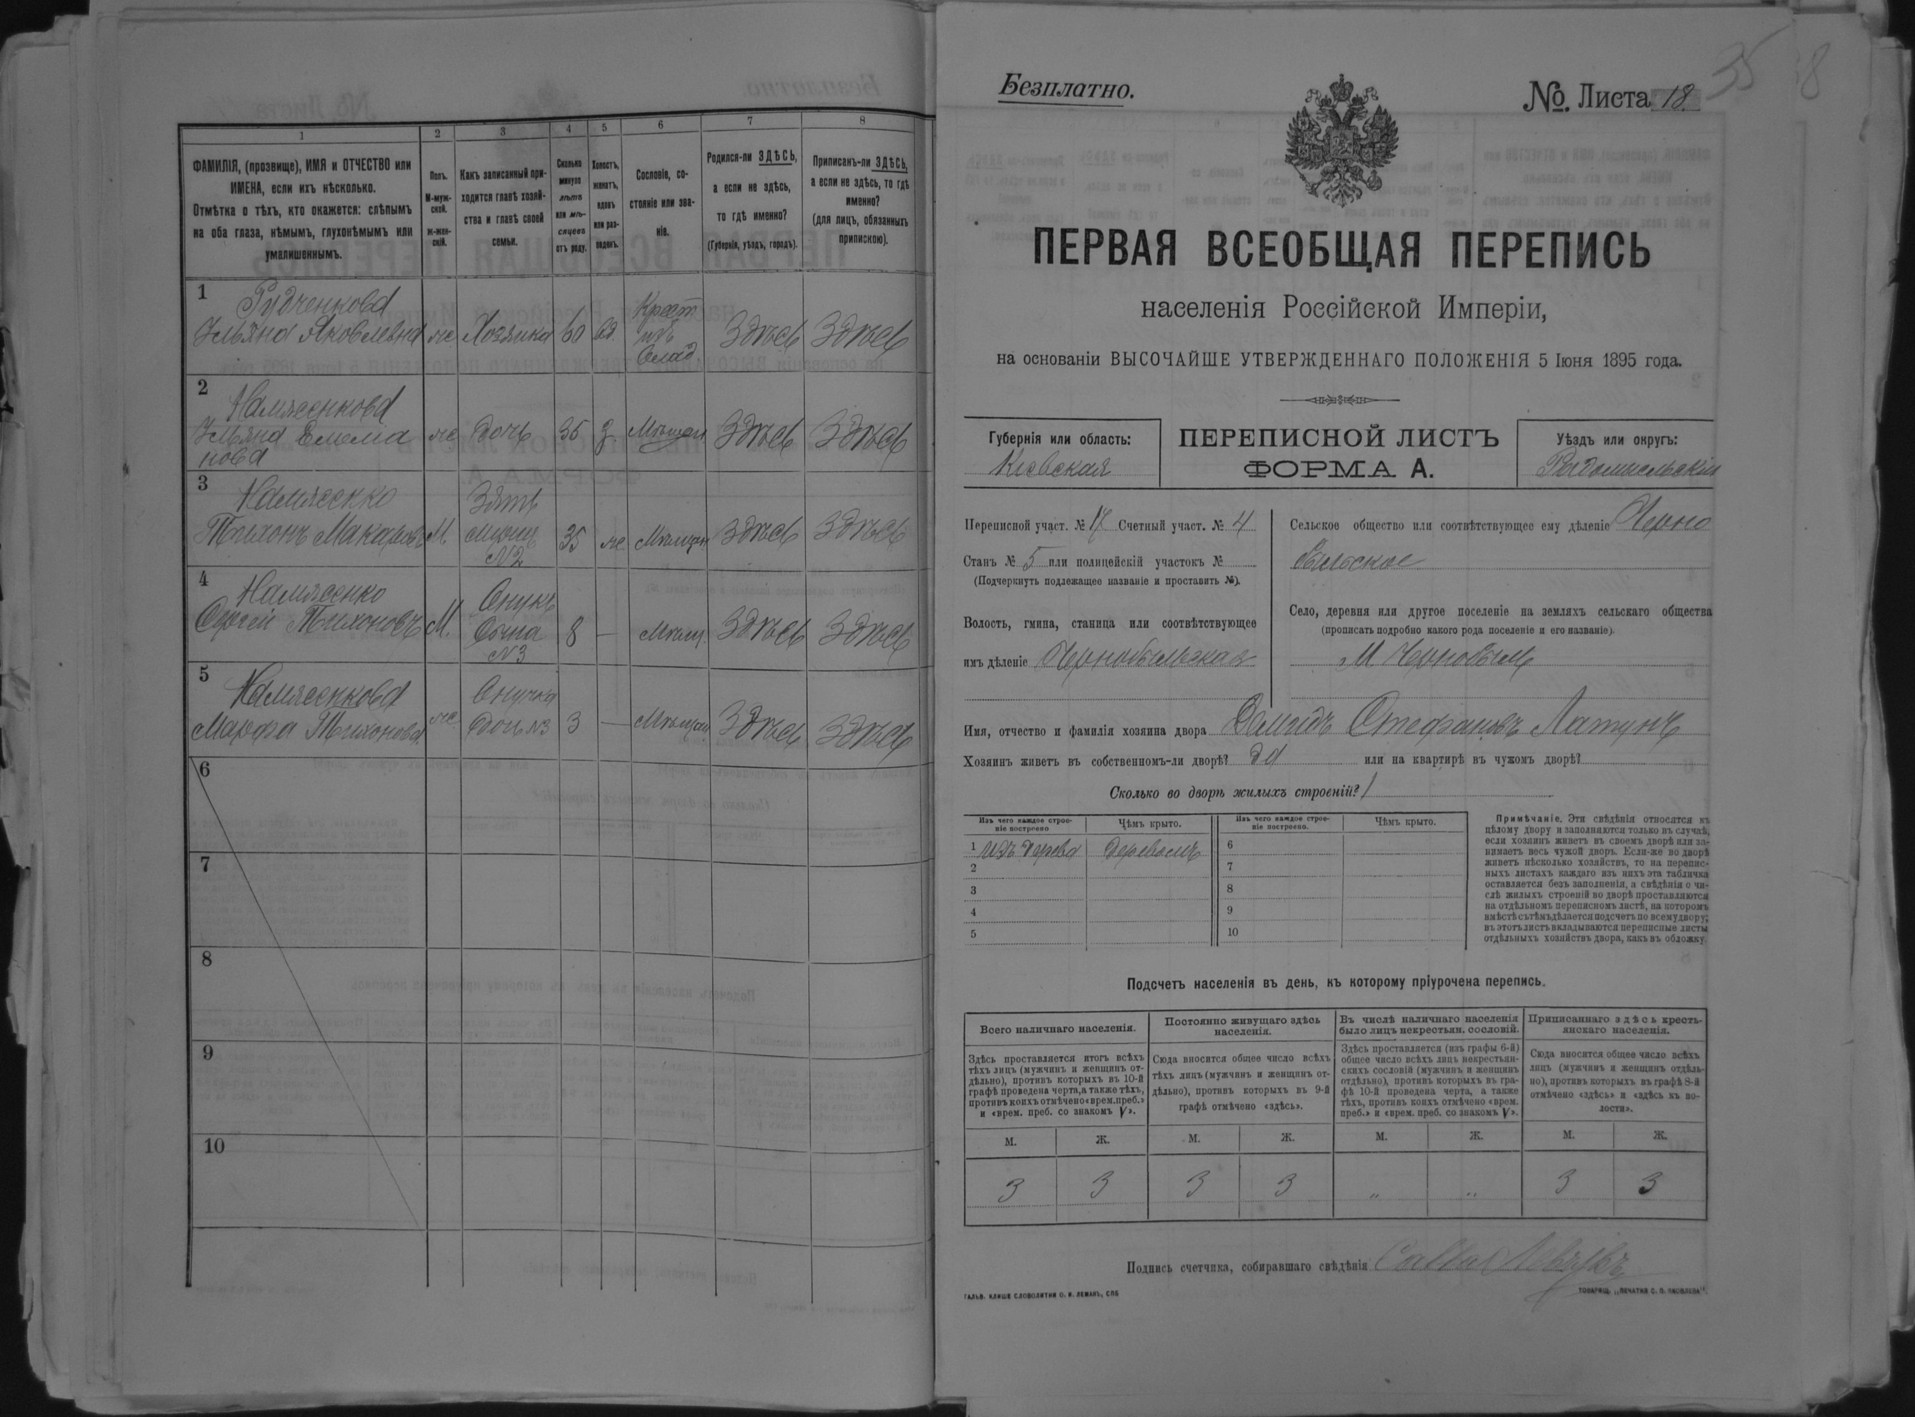 1
2
3
4
5
6
7
8
ФАМИЛІЯ, (прозвище), ИМЯ и ОТЧЕСТВО или
ИМЕНА, если ихъ нѣсколько.
Отмѣтка о тѣхъ, кто окажется: слѣпымъ
на оба глаза, нѣмымъ, глухонѣмымъ или
умалишеннымъ.
Полъ.
М-муж-
ской.
Ж-жен-
скій.
Какъ записанный при-
ходится главѣ хозяй-
ства и главѣ своей
семьи.
Сколько
минуло
лѣтъ
или мѣ-
сяцевъ
отъ роду.
Холостъ,
женатъ,
вдовъ
или раз-
веденъ.
Сословіе, со-
стояніе или зва-
ніе.
Родился-ли ЗДѢСЬ,
а если не здѣсь,
то гдѣ именно?
(Губернія, уѣздъ, городъ).
Приписанъ-ли ЗДѢСЬ,
а если не здѣсь, то гдѣ
именно?
(для лицъ, обязанныхъ
припискою).
1
Рудченкова
Ульяна Яковлевна ж Хозяйка 60 вд. Крест изъ влад Здѣсь Здѣсь
2
Ульяна Емелианова ж дочь 35 з. Мѣщан Здѣсь Здѣсь
3
Тихонъ Макаровъ М. Зять мужъ №2 35 ж Мѣщан Здѣсь Здѣсь
4
Сергій Тихоновъ М. Внукъ Сынъ №3 8 — Мѣщ. Здѣсь Здѣсь
5
Марфа Тихонова ж Внучка дочь №3 3 — Мѣщан Здѣсь Здѣсь
6
7
8
9
10
35
Безплатно.
№. Листа 18
ПЕРВАЯ ВСЕОБЩАЯ ПЕРЕПИСЬ
населенія Россійской Имперіи,
на основаніи ВЫСОЧАЙШЕ УТВЕРЖДЕННАГО ПОЛОЖЕНІЯ 5 Іюня 1895 года.
Губернія или область:
Кіевская
ПЕРЕПИСНОЙ ЛИСТЪ
ФОРМА А.
Уѣздъ или округъ:
Радомысльскій
Переписной участ. № 17 Счетный участ. № 4
Станъ № 5 или полицейскій участокъ №
(Подчеркнуть подлежащее названіе и проставить №).
Волость, гмина, станица или соотвѣтствующее
имъ дѣленіе Чернобыльская
Сельское общество или соотвѣтствующее ему дѣленіе Черно
быльское
Село, деревня или другое поселеніе на земляхъ сельскаго общества
(прописать подробно какого рода поселеніе и его названіе).
М Чернобыль
Имя, отчество и фамилія хозяина двора Демидъ Стефановъ Латунъ
Хозяинъ живетъ въ собственномъ-ли дворѣ? да или на квартирѣ въ чужомъ дворѣ?
Сколько во дворѣ жилыхъ строеній? 1
Изъ чего каждое строе-
ніе построено
Чѣмъ крыто.
Изъ чего каждое строе-
ніе построено.
Чѣмъ крыто.
1 изъ дерева деревомъ 6
2 7
3 8
4 9
5 10
Примѣчаніе. Эти свѣдѣнія относятся къ
цѣлому двору и заполняются только въ случаѣ,
если хозяинъ живетъ въ своемъ дворѣ или за-
нимаетъ весь чужой дворъ. Если-же во дворѣ
живетъ нѣсколько хозяйствъ, то на перепис-
ныхъ листахъ каждаго изъ нихъ эта табличка
оставляется безъ заполненія, а свѣдѣнія о чи-
слѣ жилыхъ строеній во дворѣ проставляются
на отдѣльномъ переписномъ листѣ, на которомъ
вмѣстѣ съ тѣмъ дѣлается подсчетъ по всему двору;
въ этотъ листъ вкладываются переписные листы
отдѣльныхъ хозяйствъ двора, какъ въ обложку.
Подсчетъ населенія въ день, къ которому пріурочена перепись.
Всего наличнаго населенія.
Постоянно живущаго здѣсь
населенія.
Въ числѣ наличнаго населенія
было лицъ некрестьян. сословій.
Приписаннаго здѣсь кресть-
янскаго населенія.
Здѣсь проставляется итогъ всѣхъ
тѣхъ лицъ (мужчинъ и женщинъ от-
дѣльно), противъ которыхъ въ 10-й
графѣ проведена черта, а также тѣхъ,
противъ коихъ отмѣчено «врем. преб.»
и «врем. преб. со знакомъ V».
Сюда вносится общее число всѣхъ
тѣхъ лицъ (мужчинъ и женщинъ от-
дѣльно), противъ которыхъ въ 9-й
графѣ отмѣчено «здѣсь».
Здѣсь проставляется (изъ графы 6-й)
общее число всѣхъ лицъ некрестьян-
скихъ сословій (мужчинъ и женщинъ
отдѣльно), противъ которыхъ въ гра-
фѣ 10-й проведена черта, а также
тѣхъ, противъ коихъ отмѣчено «врем.
преб.» и «врем. преб. со знакомъ V».
Сюда вносится общее число всѣхъ
лицъ (мужчинъ и женщинъ отдѣль-
но), противъ которыхъ въ графѣ 8-й
отмѣчено «здѣсь» и «здѣсь въ во-
лости».
М. Ж. М. Ж. М. Ж. М. Ж.
3 3 3 3 „ „ 3 3
Подпись счетчика, собиравшаго свѣдѣнія
ГАЛЬВ. КЛИШЕ СЛОВОЛИТНИ О. И. ЛЕМАНЪ, СПБ
ТОВАРИЩ. „ПЕЧАТНЯ С. П. ЯКОВЛЕВА“.